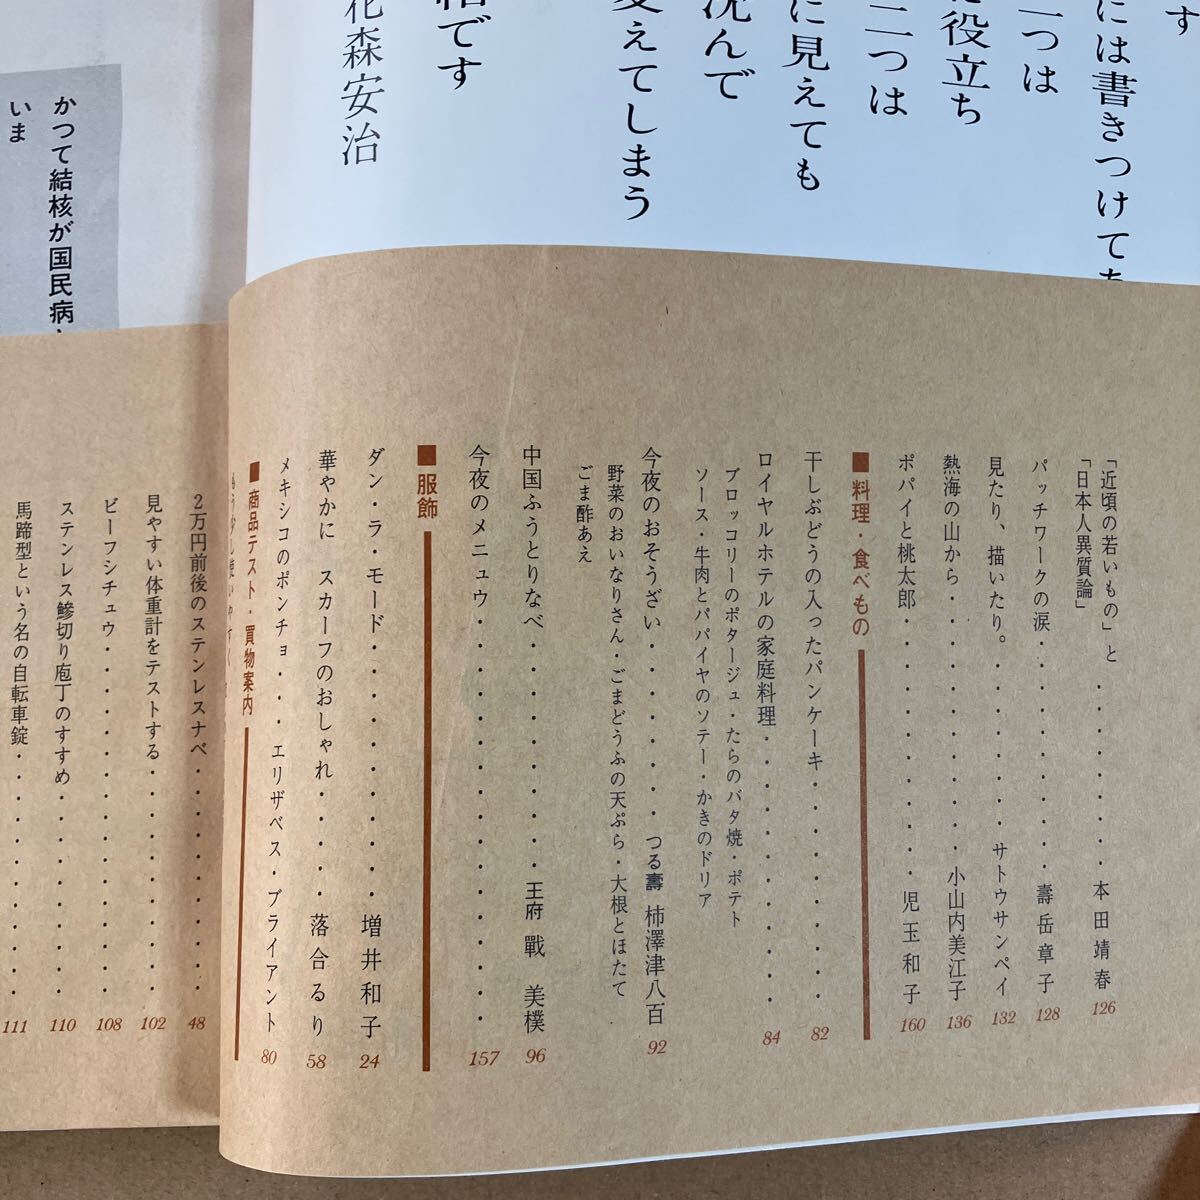 す
には書きつけてあ
一つは
役立ち
二つは
に見えても
沈んで
変えてしまう
です
花森安治
かつて結核が国民病
いま
「近頃の若いもの」と
「日本人異質論」・・・・・・・・本田靖春 126
パッチワークの涙・・・・・・・・壽岳章子 128
見たり、描いたり。・・・・・・・サトウサンペイ 132
熱海の山から・・・・・・・・小山内美江子 136
ポパイと桃太郎・・・・・・・・・児玉和子 160
■料理・食べもの
干しぶどうの入ったパンケーキ・・・・・・・・ 82
ロイヤルホテルの家庭料理・・・・・・・・・ 84
ブロッコリーのポタージュ・たらのバタ焼・ポテト
ソース・牛肉とパパイヤのソテー・かきのドリア
今夜のおそうざい・・・・・・つる壽 柿澤津八百 92
野菜のおいなりさん・ごまどうふの天ぷら・大根とほたて
ごま酢あえ
中国ふうとりなべ・・・・・・・・王府 戰 美樸 96
今夜のメニュウ・・・・・・・・・・・・・・ 157
■服飾
ダン・ラ・モード・・・・・・・・増井和子 24
華やかに スカーフのおしゃれ・・・・落合るり 58
メキシコのポンチョ・・・エリザベス・ブライアント 80
■商品テスト・買物案内
もう少し使いやすく
2万円前後のステンレスナベ・・・・・・・・ 48
見やすい体重計をテストする・・・・・・・・ 102
ビーフシチュウ・・・・・・・・・・・・ 108
ステンレス鰺切り庖丁のすすめ・・・・・・・・ 110
馬蹄型という名の自転車錠・・・・・・・・・ 111